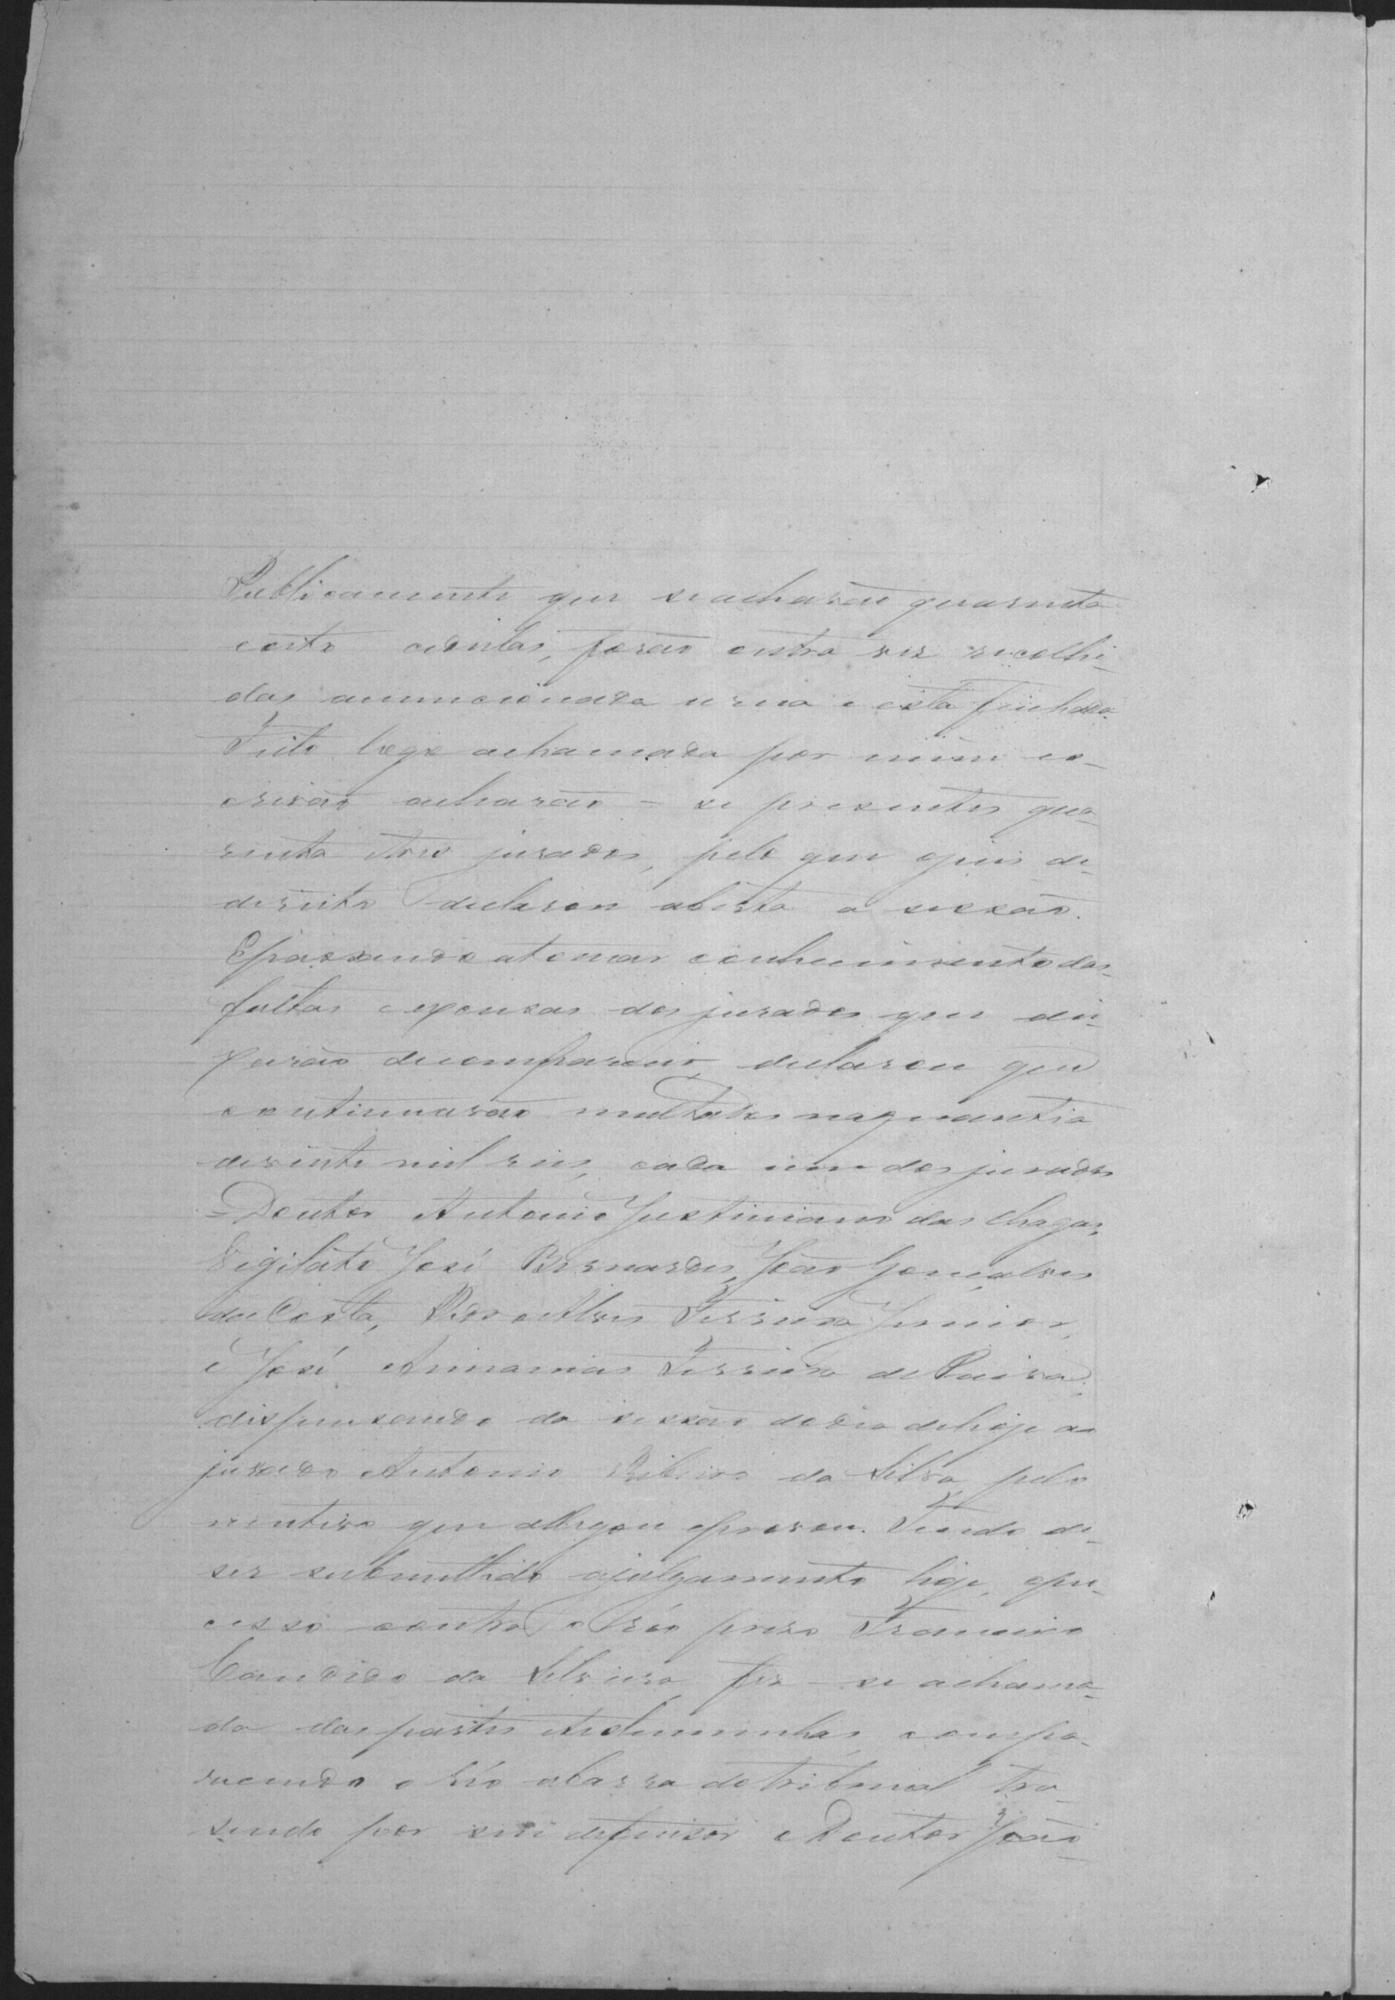 Publicamente que se acharão quarenta
e oito cedulas, forão outra vez recolhi-
das amencionada urna e esta feichada.
Feito logo achamada por mim es-
crivão acharão-se presentes qua-
renta e tres jurados, pelo que ojuis de
dereito declarou aberta a sessão.
E passando atomar conhecimento das
faltas e excusas dos jurados que dei-
xarão decomparecer, declarou que
continuarão multados naquantia
devinte mil reis, cada um dos jurados
Doutor Antonio Justiniano das Chagas,
Vigilato José Bernardes, João Gonçalves
da Costa, Pedro Alves Ferreira Junior,
e José Ananias Ferreira de Paiva,
dispensando da sessão dodia dehoje ao
jurado Antonio Ribeiro da Silva, pelo
mentivo que allegou eprovou. Tendo de
ser submettido ajulgamento hoje, opro-
cesso contra o réo preso Francisco
Candido da Silveira, fez-se achama-
da das partes etestemunhas, compa-
recendo o réo abarra dotribunal tra-
sendo por seu defensor o Doutor João